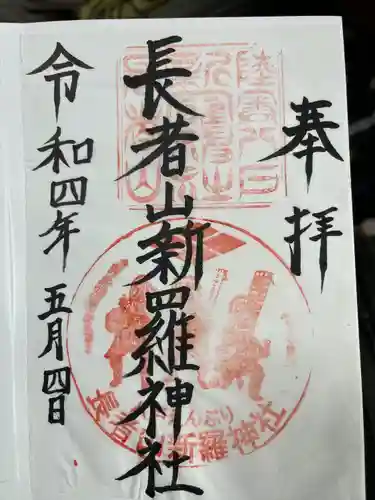 奉拝
長者山新羅神社
令和四年 五月四日
長者山新羅神社